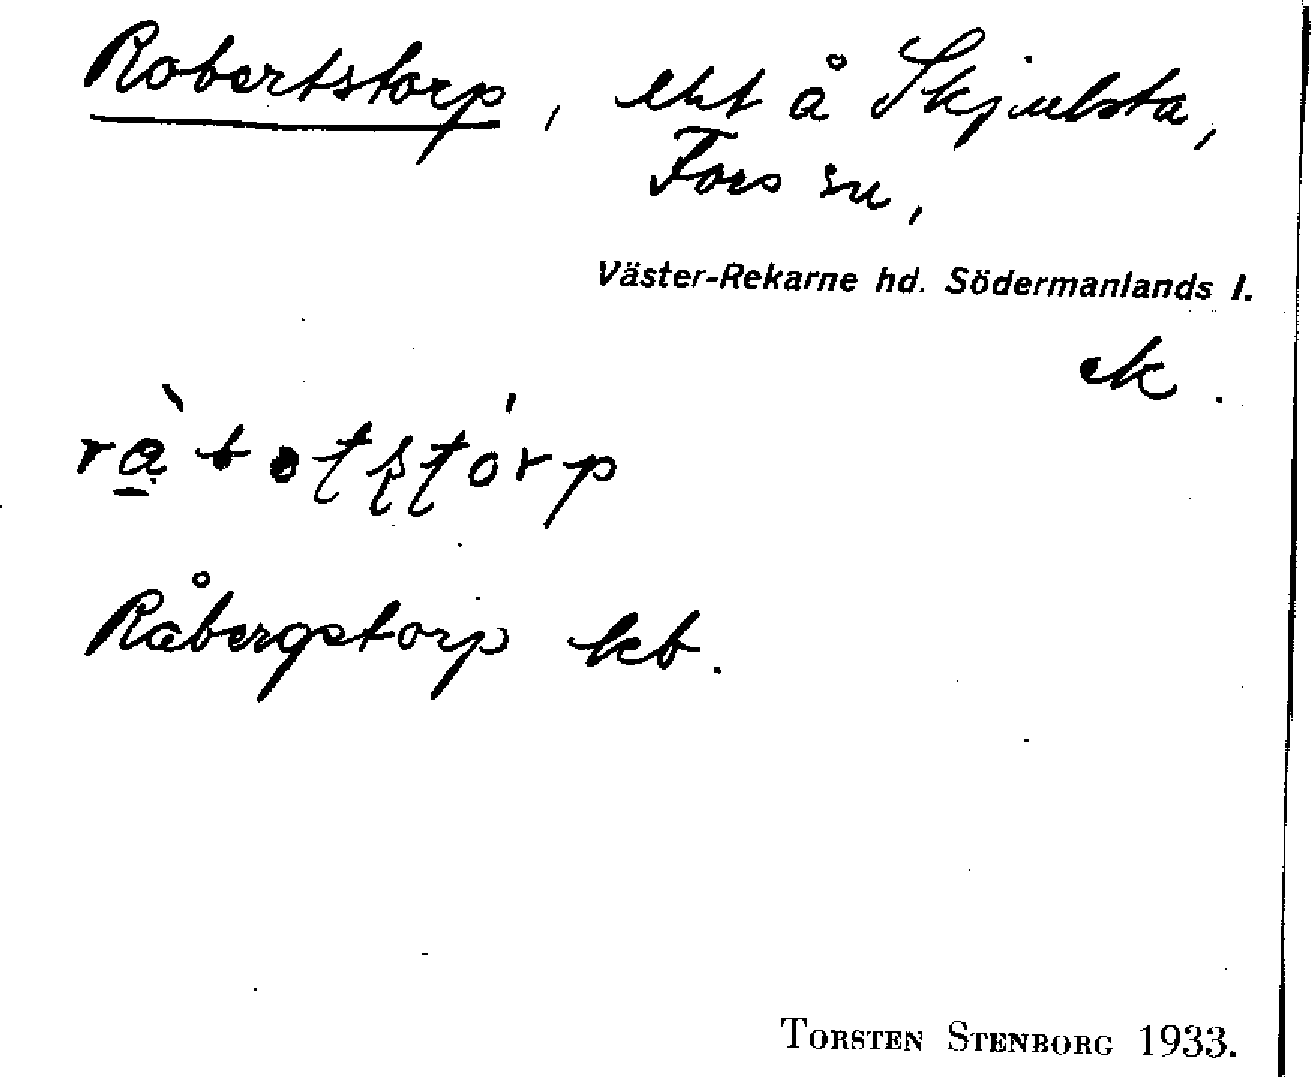 Robertstorp, lht å Skjulsta,
Fors sn,
Väster-Rekarne hd. Södermanlands l.
ek.
Råbergstorp kb.
TORSTEN STENBORG 1933.